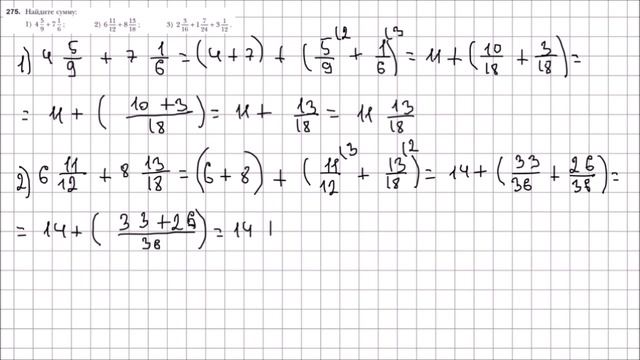 275. Найдите сумму:
1) 4 5/9 + 7 1/6; 2) 6 11/12 + 8 13/18; 3) 2 3/16 + 1 7/24 + 3 1/12.
1) 4 5/9 + 7 1/6 = (4 + 7) + (5/9 (2 + 1/6 (3) = 11 + (10/18 + 3/18) =
= 11 + (10 + 3/18) = 11 + 13/18 = 11 13/18
2) 6 11/12 + 8 13/18 = (6 + 8) + (11/12 (3 + 13/18 (2) = 14 + (33/36 + 26/36) =
= 14 + (33 + 26/36) = 14